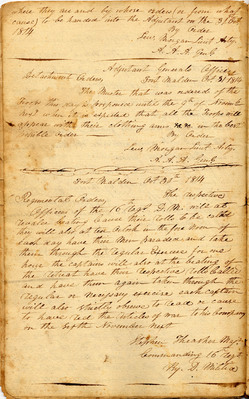 where they are and by whose orders (or from what
cause) to be handed into the Adjutant on the 31 Oct
1814 By Order
Levi Morgan Lieut Arty
A. A. A. Genl
Adjutant Generals Office
Fort Malden Oct 31st 1814
Detachment Orders
The Muster that was ordered of the
Troops this day is postponed until the 3d of Novem
next when it is expected that all the Troops will
appear with their clothing arms &c &c in the best
possible order By Order
Levi Morgan Lieut Arty
A. A. A. Genl
Fort Malden Oct 31st 1814
Regimental Orders The respective
Officers of the 16 Regt D. M. will at
beating cause their Rolls to be called
they will also at ten oClock in the fore noon of
each day have their Men paraded and take
them through the regular Exercise for one
hour the captains will also at the beating of
the Retreat have their respective Rolls called
and have them again taken through the
regular or necessary exercise each captain
will also strictly observe to read or cause
to have read the Articles of war to his Company
on the November next
Stephen Thrasher Major
Commanding 16 Regt
D. Militia